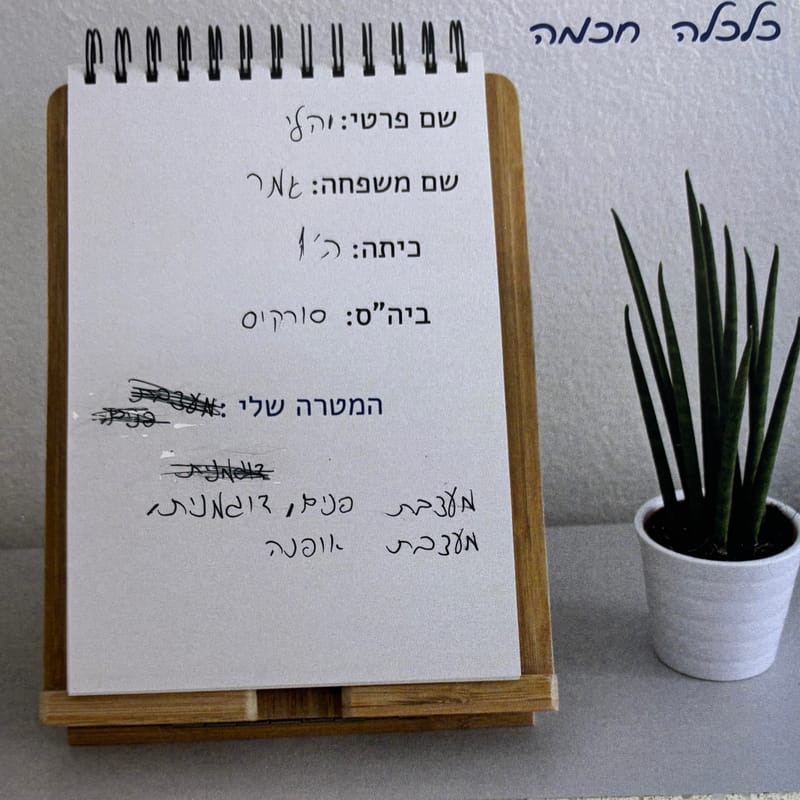 כלכלה חכמה
שם פרטי: והלי
שם משפחה: גמר
כיתה: ה'1
ביה"ס: סורקיס
המטרה שלי: מעצבת
פנים,
דוגמנית
מעצבת פנים, דוגמנית,
מעצבת אופנה